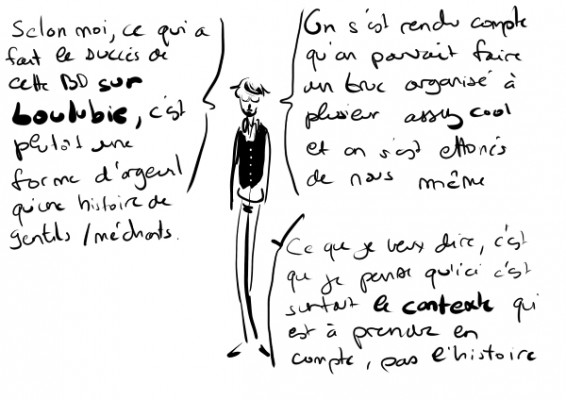 Selon moi, ce qui a
fait le succès de
cette BD sur
boulubie, c'est
plutôt une
forme d'orgeuil
qu'une histoire de
gentils / méchants.
On s'est rendu compte
qu'on pouvait faire
un truc organisé à
plusieur assez cool
et on s'est ettonés
de nous même
Ce que je veux dire, c'est
que je pense qu'ici c'est
surtout le contexte qui
est à prendre en
compte, pas l'histoire